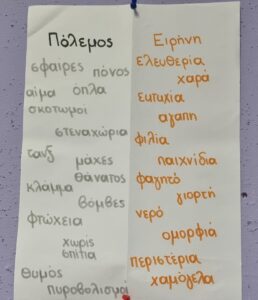 Πόλεμος
σφαίρες πόνος
αίμα όπλα
σκοτωμοι
στεναχώρια
τανξ μάχες
θάνατος
κλάμμα
βόμβες
φτώχεια
χωρίς
σπίτια
θυμός
πυροβολισμοί
Ειρήνη
ελευθερία
χαρά
ευτυχία
αγαπη
φιλία
παιχνίδια
φαγητό
γιορτή
νερό
ομορφιά
περιστέρια
χαμόγελα